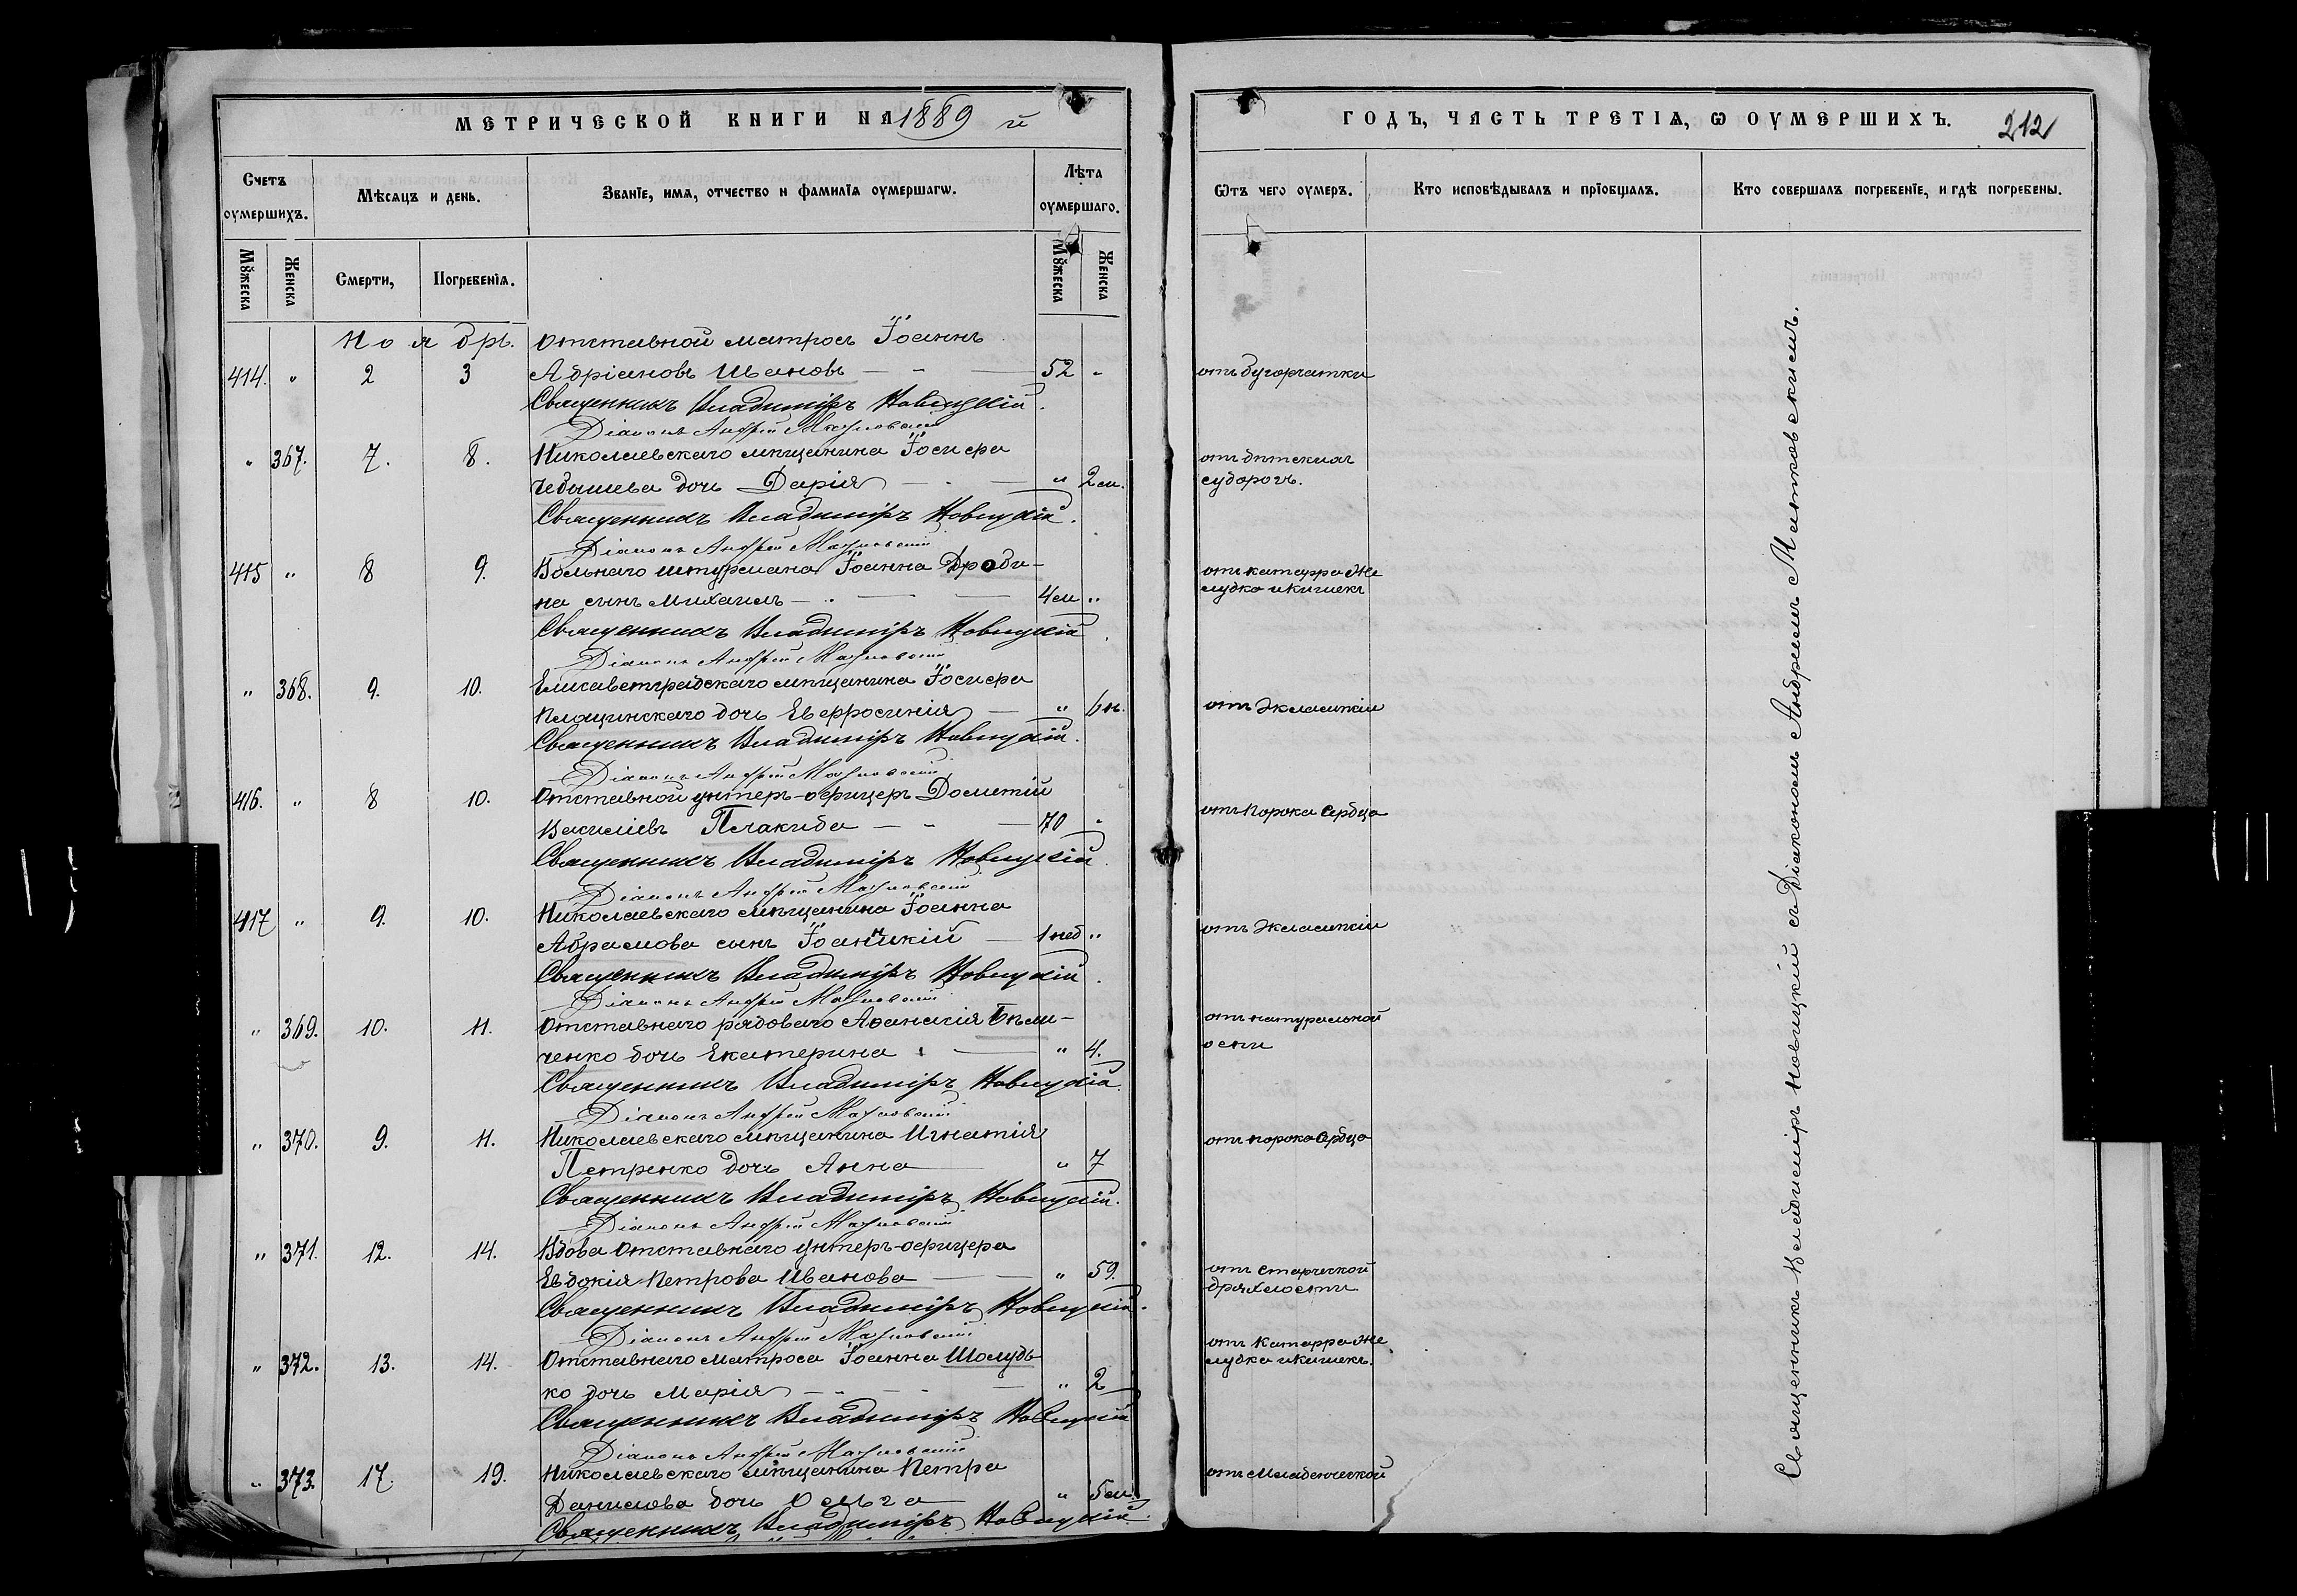 МЕТРИЧЕСКОЙ КНИГИ НА 1889 й
ГОДЪ, ЧАСТЬ ТРЕТІѦ, Ѡ ОУМЕРШИХЪ.
212
Счетъ оумершихъ.
Мѣсѧцъ и день.
Званїе, имѧ, отчество и фамилїѧ оумершагѡ.
Лѣта оумершаго.
Ѿтъ чего оумеръ.
Кто исповѣдывалъ и прїобщалъ.
Кто совершалъ погребенїе, и гдѣ погребены.
Мꙋжеска
Женска
Смерти,
Погребенїѧ.
Мꙋжеска
Женска
Ноябрь. Отставной матросъ Іоаннъ
414. " 2 3 Адріановъ Ивановъ 52 " отъ бугорчатки
Священникъ Владиміръ Новицкій.
Діаконъ Андрей
" 367. 7. 8. Николаевскаго мѣщанина Іосифа отъ дѣтскихъ
дочь Дарія " 2 м. судорогъ.
Священникъ Владиміръ Новицкій.
Діаконъ Андрей
415 " 8 9. Вольнаго штурмана Іоанна Дроби- отъ катарра же
на сынъ Михаилъ 4 м " лудка и кишекъ
Священникъ Владиміръ Новицкій.
Діаконъ Андрей
" 368. 9. 10. Елисаветградскаго мѣщанина Іосифа
дочь Евфросинія " 6 н. отъ Экламсіи
Священникъ Владиміръ Новицкій.
Діаконъ Андрей
416. " 8 10. Отставной унтеръ-офицеръ Дометій отъ порока сердца
Василіевъ Плакида 70 "
Священникъ Владиміръ Новицкій.
Діаконъ Андрей
417 " 9. 10. Николаевскаго мѣщанина Іоанна отъ Экламсіи
Абрамова сынъ Іоанникій 1 нед "
Священникъ Владиміръ Новицкій.
Діаконъ Андрей
" 369. 10. 11. Отставнаго рядоваго Аѳанасія отъ натуральной
ченко дочь Екатерина " 4. оспы
Священникъ Владиміръ Новицкій.
Діаконъ Андрей
" 370. 9. 11. Николаевскаго мѣщанина Игнатія отъ порока сердца
Петренко дочь Анна " 7
Священникъ Владиміръ Новицкій.
Діаконъ Андрей
" 371. 12. 14. Вдова отставнаго унтеръ-офицера
Евдокія Петрова Иванова " 59. отъ старческой
Священникъ Владиміръ Новицкій. дряхлости
Діаконъ Андрей
" 372. 13. 14. Отставнаго матроса Іоанна Шолудь- отъ катарра же
ко дочь Марія " 2 лудка и кишекъ.
Священникъ Владиміръ Новицкій
Діаконъ Андрей
" 373. 17. 19. Николаевскаго мѣщанина Петра отъ младенческой
Данилова дочь Ольга " 5 м.
Священникъ Владиміръ Новицкій.
Священникъ Владиміръ Новицкій съ Діакономъ Андреемъ Матковскимъ.